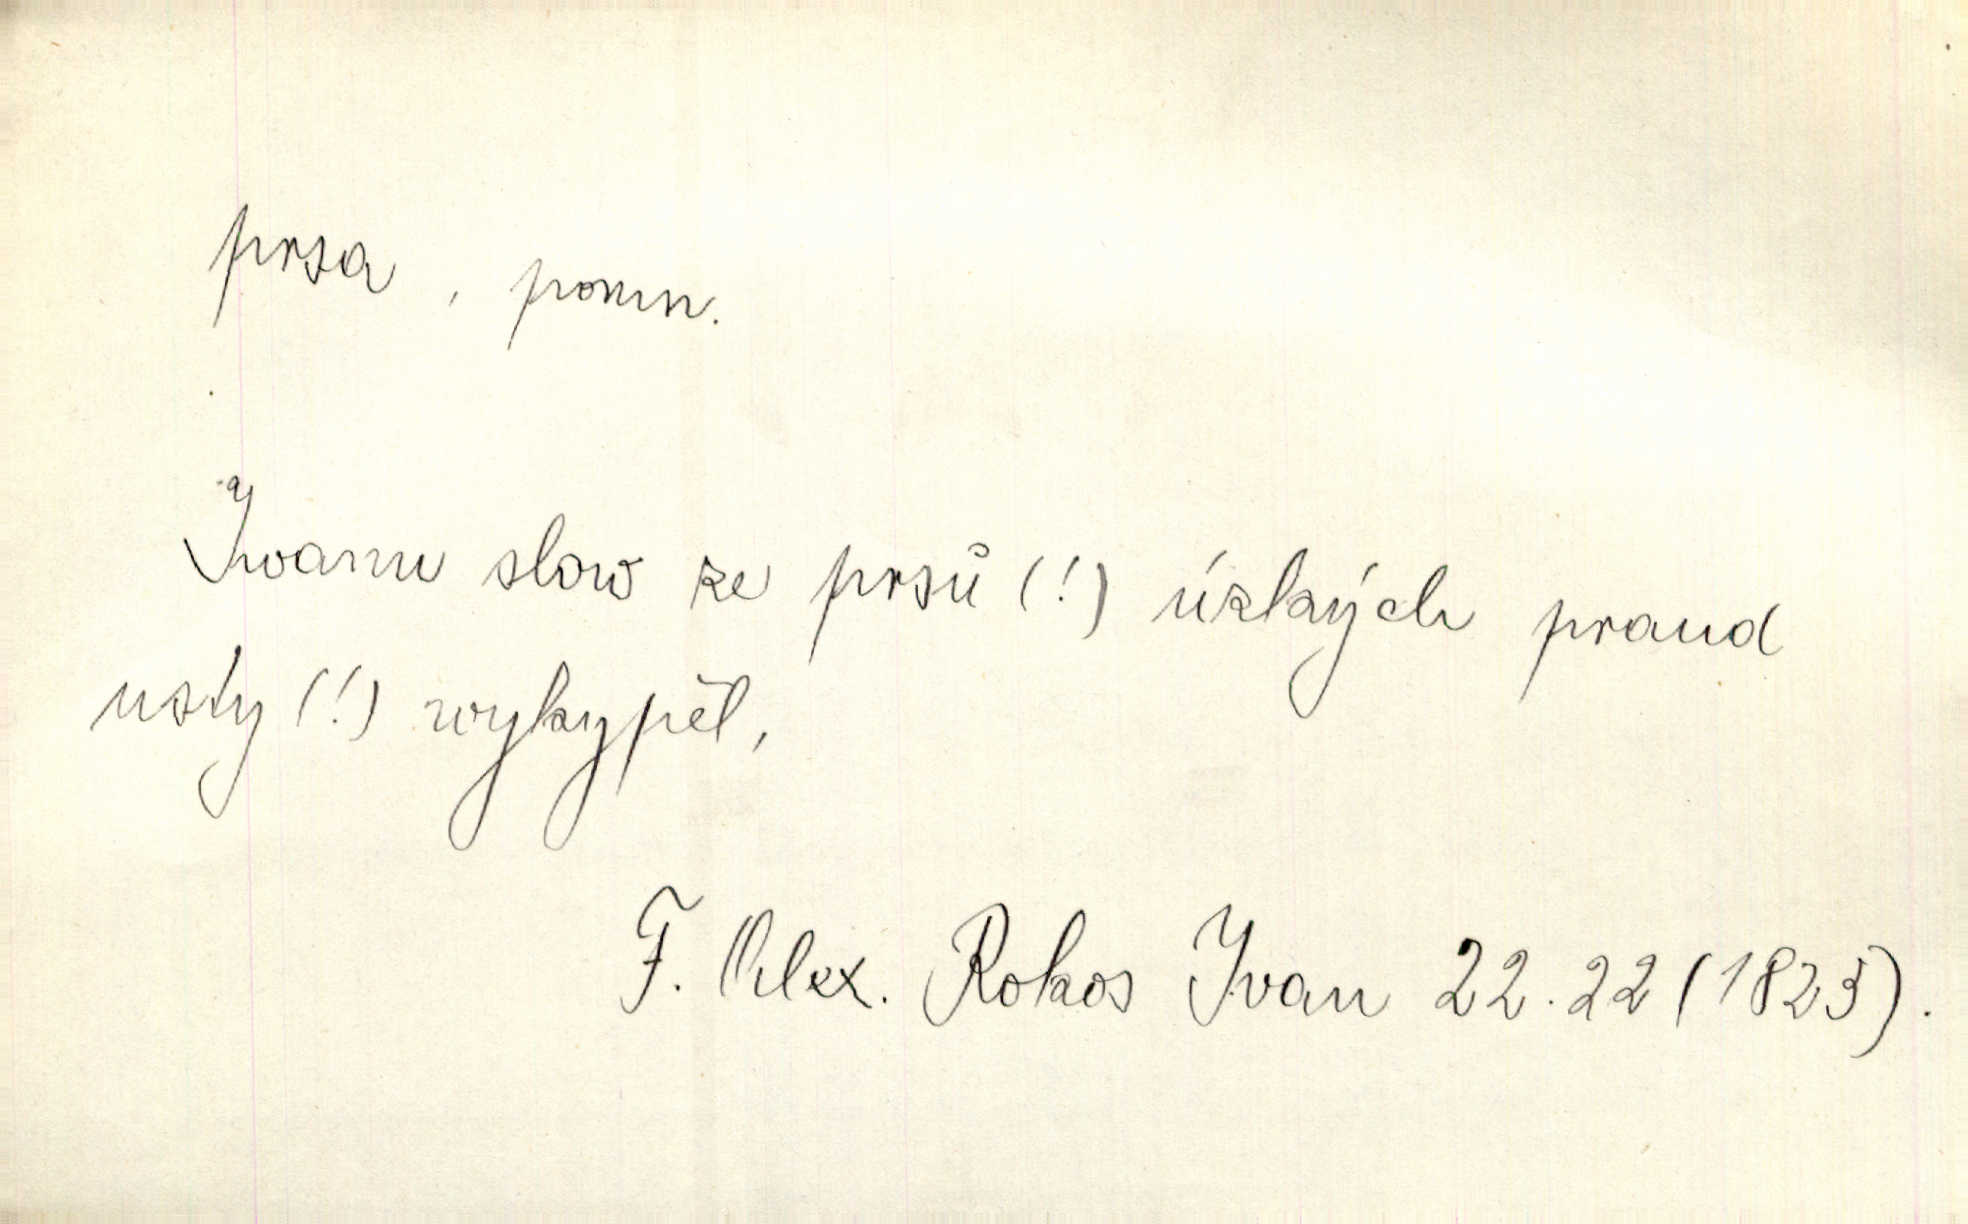 prsa, pomn.
Iwanu slow ze prsů (!) úzkých praud
usty (!) wykypěl,
F. Alex. Rokos Ivan 22.22 (1823).